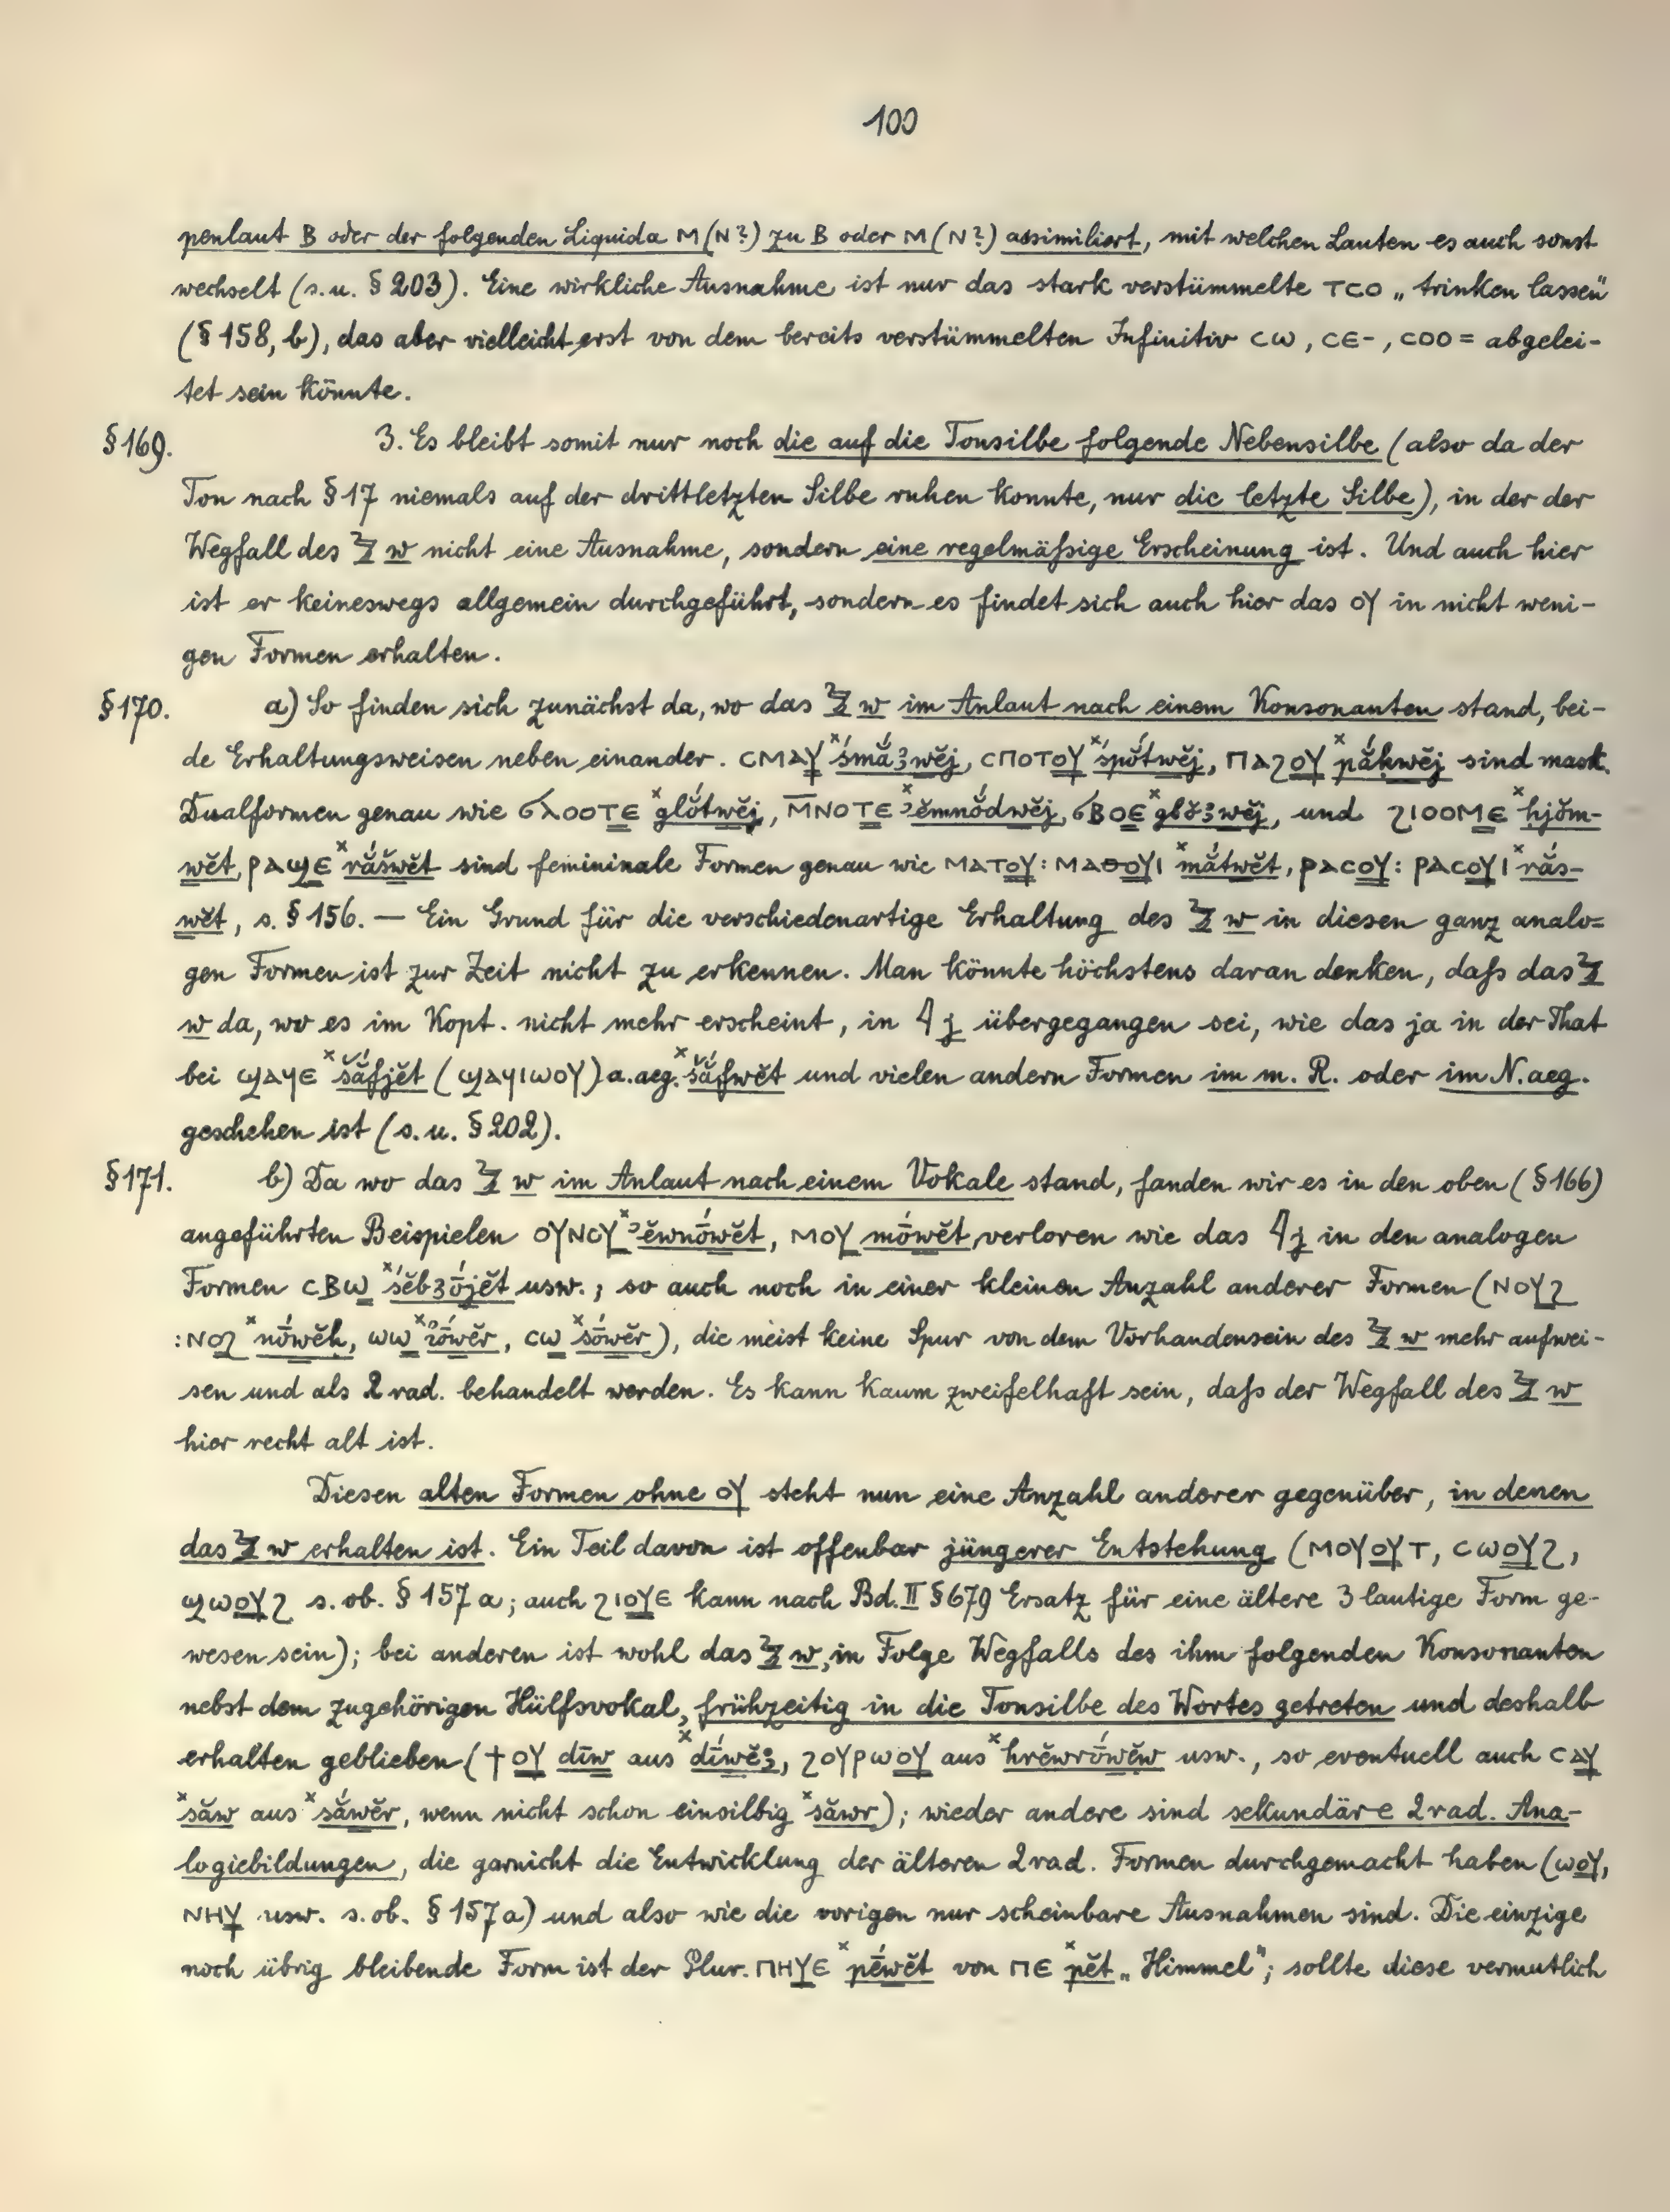 100
penlaut B oder der folgenden Liquida M (N?) zu B oder M (N?) assimiliert, mit welchen Lauten es auch sonst
wechselt (s. u. § 203). Eine wirkliche Ausnahme ist nur das stark verstümmelte ⲧⲥⲟ „trinken lassen"
(§ 158, b), das aber vielleicht erst von dem bereits verstümmelten Infinitiv ⲥⲱ, ⲥⲉ-, ⲥⲟⲟ= abgelei-
tet sein könnte.
§ 169. 3. Es bleibt somit nur noch die auf die Tonsilbe folgende Nebensilbe (also da der
Ton nach § 17 niemals auf der drittletzten Silbe ruhen konnte, nur die letzte Silbe), in der der
Wegfall des 𓅱 w nicht eine Ausnahme, sondern eine regelmäßige Erscheinung ist. Und auch hier
ist er keineswegs allgemein durchgeführt, sondern es findet sich auch hier das ⲟⲩ in nicht weni-
gen Formen erhalten.
§ 170. a) So finden sich zunächst da, wo das 𓅱 w im Anlaut nach einem Konsonanten stand, bei-
de Erhaltungsweisen neben einander. ⲥⲙⲁⲩ ˣśmắꜣwĕj, ⲥⲡⲟⲧⲟⲩ ˣspŏ́twĕj, ⲡⲁϩⲟⲩ ˣpắḥwĕj sind mask.
Dualformen genau wie ϭⲗⲟⲟⲧⲉ ˣglŏ́twĕj, ⲙ̅ⲛⲟⲧⲉ ˣꜥĕmnŏ́dwĕj, ϭⲃⲟⲉ ˣgbŏ́ꜣwĕj, und ϩⲓⲟⲟⲙⲉ ˣḥjŏ́m-
wĕt, ⲣⲁϣⲉ ˣrắšwĕt sind femininale Formen genau wie ⲙⲁⲧⲟⲩ: ⲙⲁⲑⲟⲩⲓ ˣmắtwĕt, ⲣⲁⲥⲟⲩ: ⲣⲁⲥⲟⲩⲓ ˣrắs-
wĕt, s. § 156. — Ein Grund für die verschiedenartige Erhaltung des 𓅱 w in diesen ganz analo=
gen Formen ist zur Zeit nicht zu erkennen. Man könnte höchstens daran denken, daß das 𓅱
w da, wo es im Kopt. nicht mehr erscheint, in 𓇋 j übergegangen sei, wie das ja in der That
bei ϣⲁϥⲉ ˣšắfjĕt (ϣⲁϥⲓⲱⲟⲩ) a. aeg. ˣšắfwĕt und vielen andern Formen im m. R. oder im N. aeg.
geschehen ist (s. u. § 202).
§ 171. b) Da wo das 𓅱 w im Anlaut nach einem Vokale stand, fanden wir es in den oben (§ 166)
angeführten Beispielen ⲟⲩⲛⲟⲩ ˣꜣĕwnṓwĕt, ⲙⲟⲩ mṓwĕt, verloren wie das 𓇋 j in den analogen
Formen ⲥⲃⲱ ˣśĕbꜣṓjĕt usw.; so auch noch in einer kleinen Anzahl anderer Formen (ⲛⲟⲩϩ
: ⲛⲟϩ ˣnṓwĕḥ, ⲱⲱ ˣꜣṓwĕr, ⲥⲱ ˣsṓwĕr), die meist keine Spur von dem Vorhandensein des 𓅱 w mehr aufwei-
sen und als 2 rad. behandelt werden. Es kann kaum zweifelhaft sein, daß der Wegfall des 𓅱 w
hier recht alt ist.
Diesen alten Formen ohne ⲟⲩ steht nun eine Anzahl anderer gegenüber, in denen
das 𓅱 w erhalten ist. Ein Teil davon ist offenbar jüngerer Entstehung (ⲙⲟⲩⲟⲩⲧ, ⲥⲱⲟⲩϩ,
ϣⲱⲟⲩϩ s. ob. § 157 a; auch ϩⲓⲟⲩⲉ kann nach Bd. II § 679 Ersatz für eine ältere 3 lautige Form ge-
wesen sein); bei anderen ist wohl das 𓅱 w, in Folge Wegfalls des ihm folgenden Konsonanten
nebst dem zugehörigen Hülfsvokal, frühzeitig in die Tonsilbe des Wortes getreten und deshalb
erhalten geblieben (ϯⲟⲩ dīw aus ˣdī́wĕꜣ, ϩⲟⲩⲣⲱⲟⲩ aus ˣhrĕwrṓwĕw usw., so eventuell auch ⲥⲁⲩ
ˣsăw aus ˣsắwĕr, wenn nicht schon einsilbig ˣsăwr); wieder andere sind sekundäre 2 rad. Ana-
logiebildungen, die garnicht die Entwicklung der älteren 2 rad. Formen durchgemacht haben (ⲱⲟⲩ,
ⲛⲏⲩ usw. s. ob. § 157 a) und also wie die vorigen nur scheinbare Ausnahmen sind. Die einzige
noch übrig bleibende Form ist der Plur. ⲡⲏⲩⲉ ˣpḗwĕt von ⲡⲉ ˣpĕt „Himmel"; sollte diese vermutlich